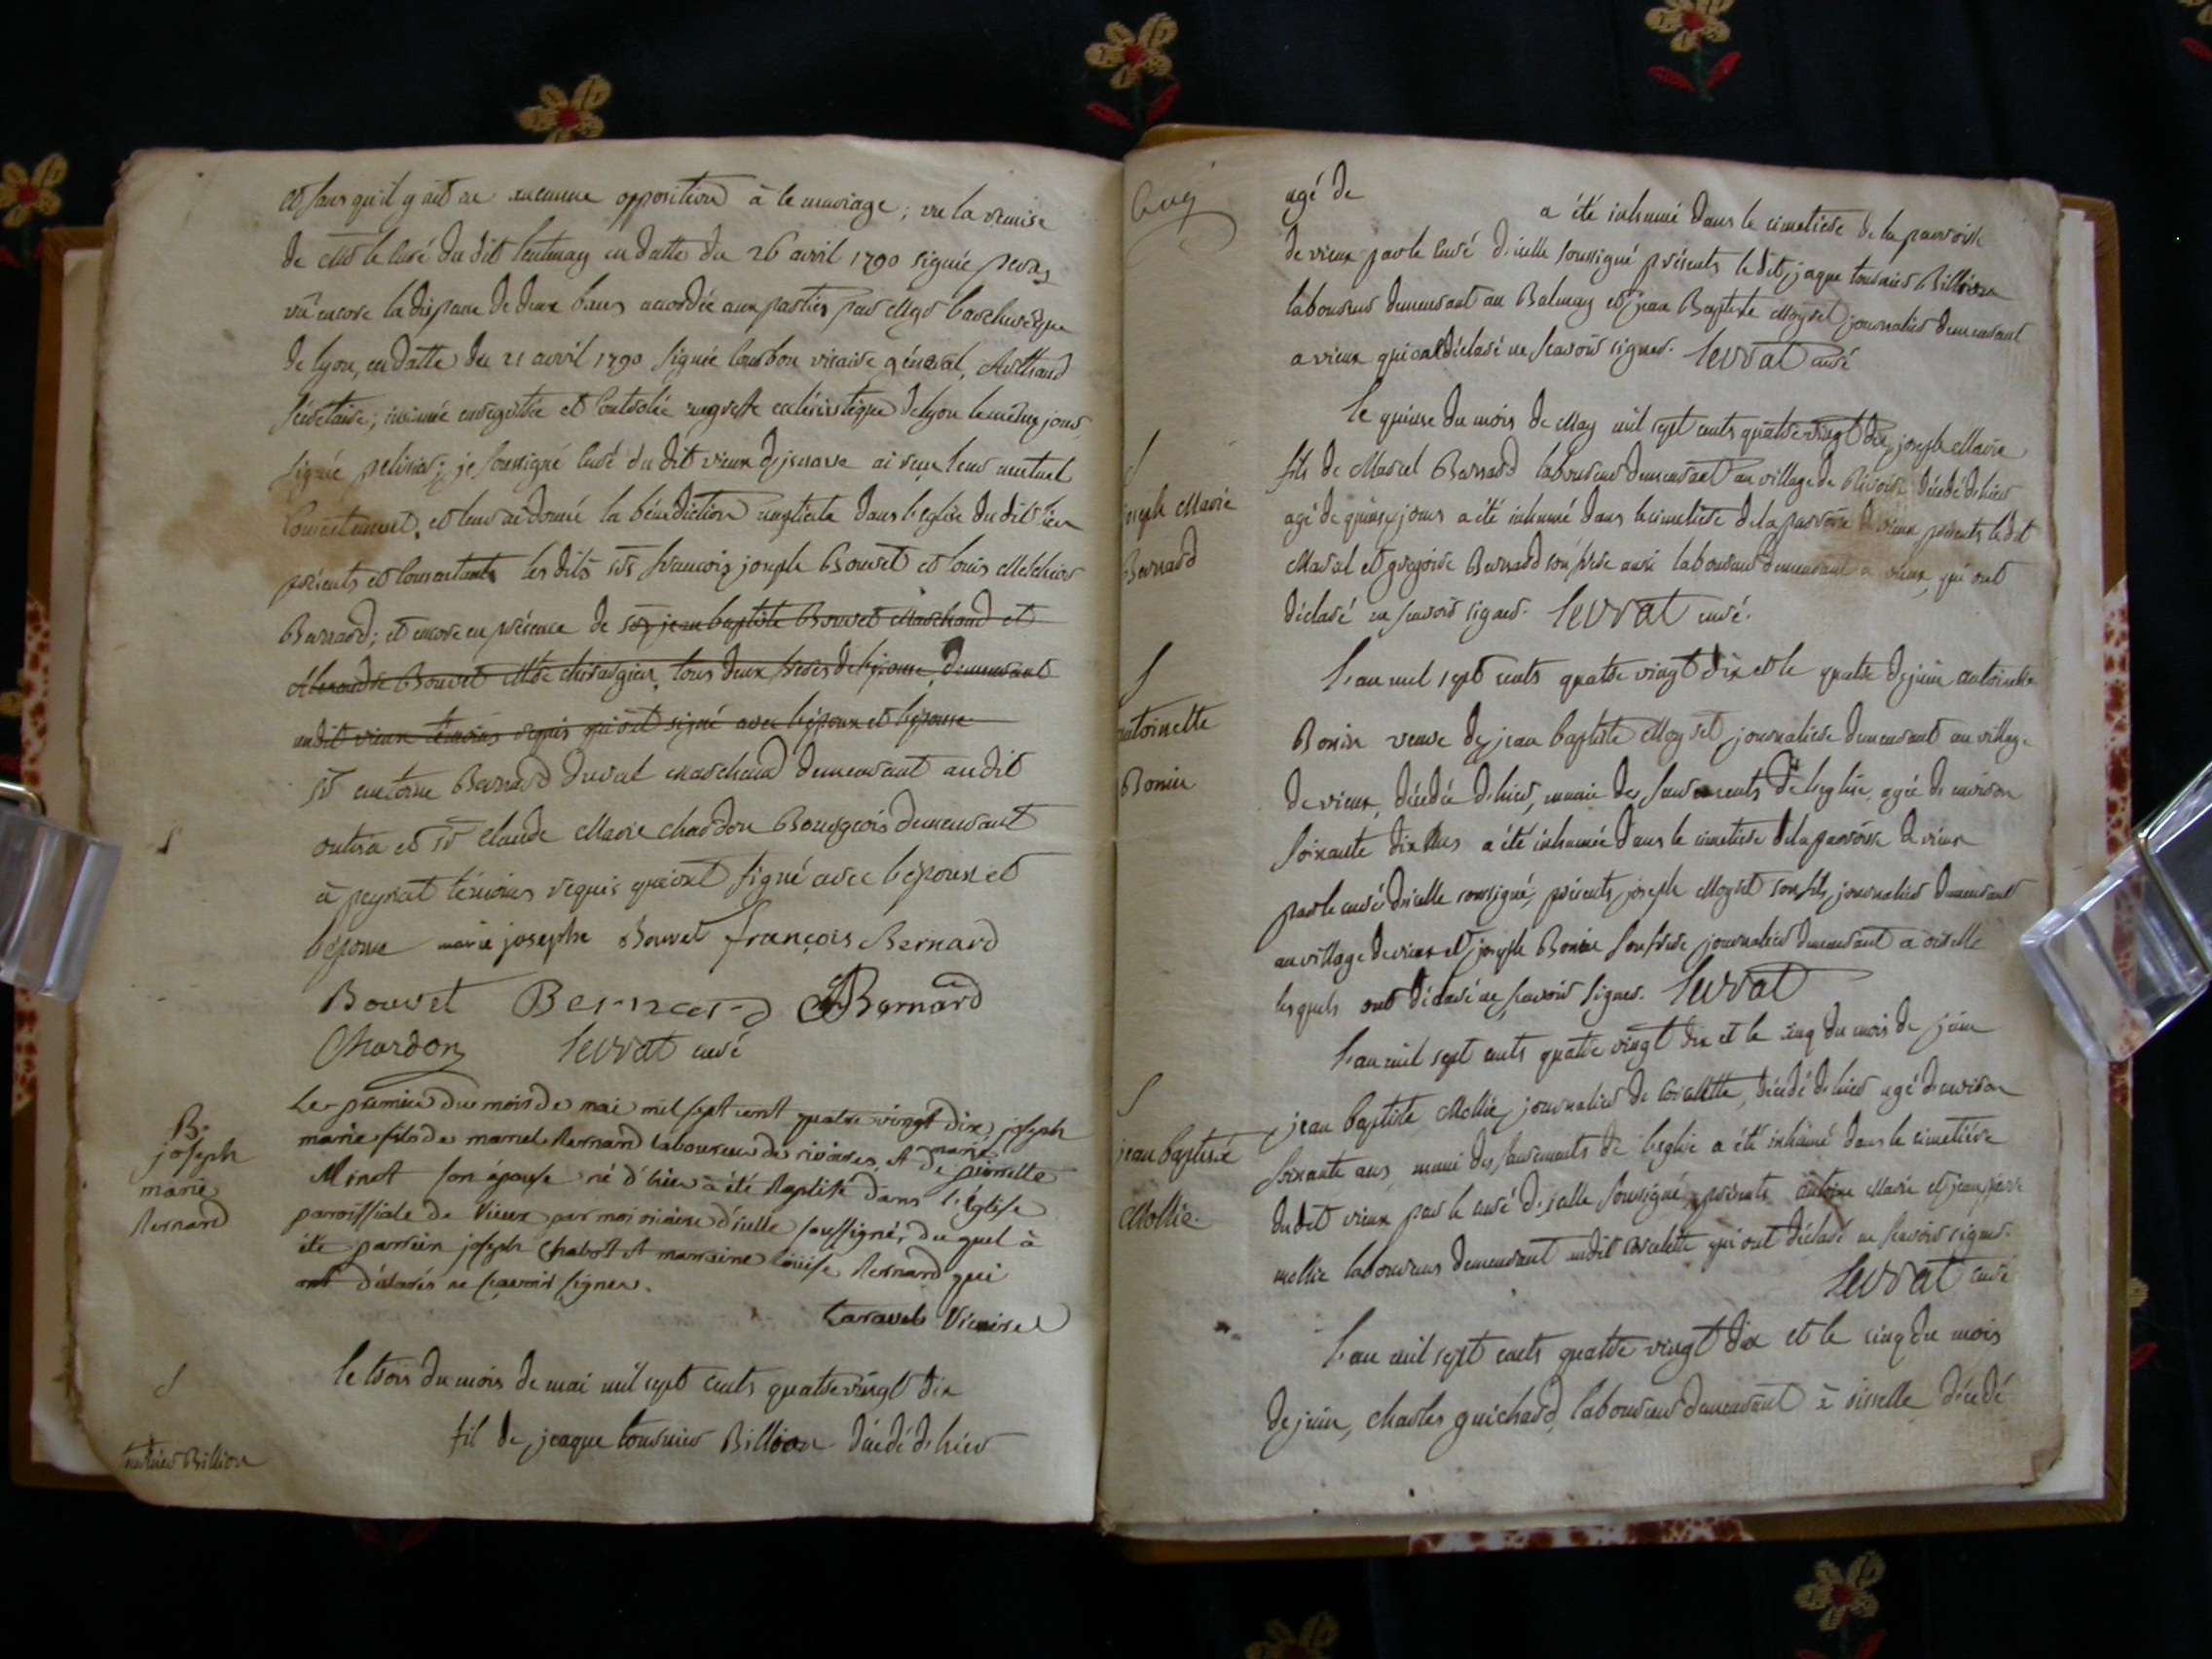 et sans qu'il y ait eu aucune opposition à le mariage; vu la remise
de Mr le curé du dit lentenay en datte du 26 avril 1790 signée
vû encore la dispense de deux bans accordée aux parties par Mgr l'archevêque
de lyon, en datte du 21 avril 1790 signée vicaire général,
sécrétaire; insinuée enregistrée et controlée au greffe ecclésiastique de lyon le même jour
signée je soussigné curé du dit vieux d'izenave ai reçu leur mutuel
consentement, et leur ai donné la bénédiction nuptiale dans l'eglise du dit lieu
présents et consentants les dits srs françois joseph Bouvet et louis Melchior
Bernard; et encore en présence de sr jean baptiste Bouvet Marchand et
Alexandre Bouvet Mtre chirurgien, tous deux freres de l'épouse, demeurant
audit vieux témoins requis qui ont signé avec l'époux et l'épouse
sr antoine Bernard duval marchand demeurant audit
outria et sr claude Marie chardon Bourgeois demeurant
à peyriat témoins requis qui ont signé avec l'époux et
l'épouse marie josephe Bouvet françois Bernard
Bouvet Bernard Bernard
Chardon levrat curé
B.
joseph
marie
Bernard
Le premier du mois de mai mil sept cent quatre vingt dix, joseph
marie fils de marcel Bernard laboureur de rivoires, et de marie pierrette
Minot son épouse né d'hier à été Baptisé dans l'église
paroissiale de Vieux par moi vicaire d'icelle soussigné, du quel à
été parrain joseph Chabot et marraine louise Bernard qui
ont déclarés ne sçavoir signer.
Taravel Vicaire
S
tournier Billion
le trois du mois de mai mil sept cents quatre vingt dix
fil de jeaque tournier Billion décédé d'hier
agé de
a été inhumé dans le cimetiere de la parroisse
de vieux par le curé d'icelle soussigné présents le dit jaque tournier Billion
laboureur demeurant au Balmay et jean Baptiste Moyret journalier demeurant
a vieux qui ont déclaré ne scavoir signer. levrat curé
S
joseph Marie
Bernard
le quinse du mois de May mil sept cents quatre vingt dix, joseph Marie
fils de Marcel Bernard laboureur demeurant au village de Rivoire décédé d'hier
agé de quinse jours a été inhumé dans le cimetiere de la parroisse de vieux présents le dit
Marcel et gregoire Bernard son frère aussi laboureur demeurant a vieux, qui ont
déclaré ne scavoir signer. levrat curé.
S
antoinette
Bonin
l'an mil sept cents quatre vingt dix et le quatre de juin antoinette
Bonin veuve de jean baptiste Moyret journaliere demeurant au village
de vieux, décédée d'hier, munie des sacrements de l'eglise, agée de environ
soixante dix ans a été inhumée dans le cimetiere de la parroisse de vieux
par le curé d'icelle soussigné, présents joseph Moyret son fils, journalier demeurant
au village de vieux et joseph Bonin son frère journalier demeurant a oiselle
lesquels ont déclaré ne scavoir signer. levrat
S
jean baptiste
Mollie.
l'an mil sept cents quatre vingt dix et le cinq du mois de juin
jean baptiste Mollie, journalier de Corcelette, décédé d'hier agé d'environ
soixante ans, muni des sacrements de l'eglise a été inhumé dans le cimetiere
du dit vieux par le curé d'icelle soussigné, présents antoine Marie et jean pierre
mollie laboureurs demeurant audit Corcelette qui ont déclaré ne scavoir signer.
levrat curé
l'an mil sept cents quatre vingt dix et le cinq du mois
de juin, charles guichard, laboureur demeurant à oisselle décédé